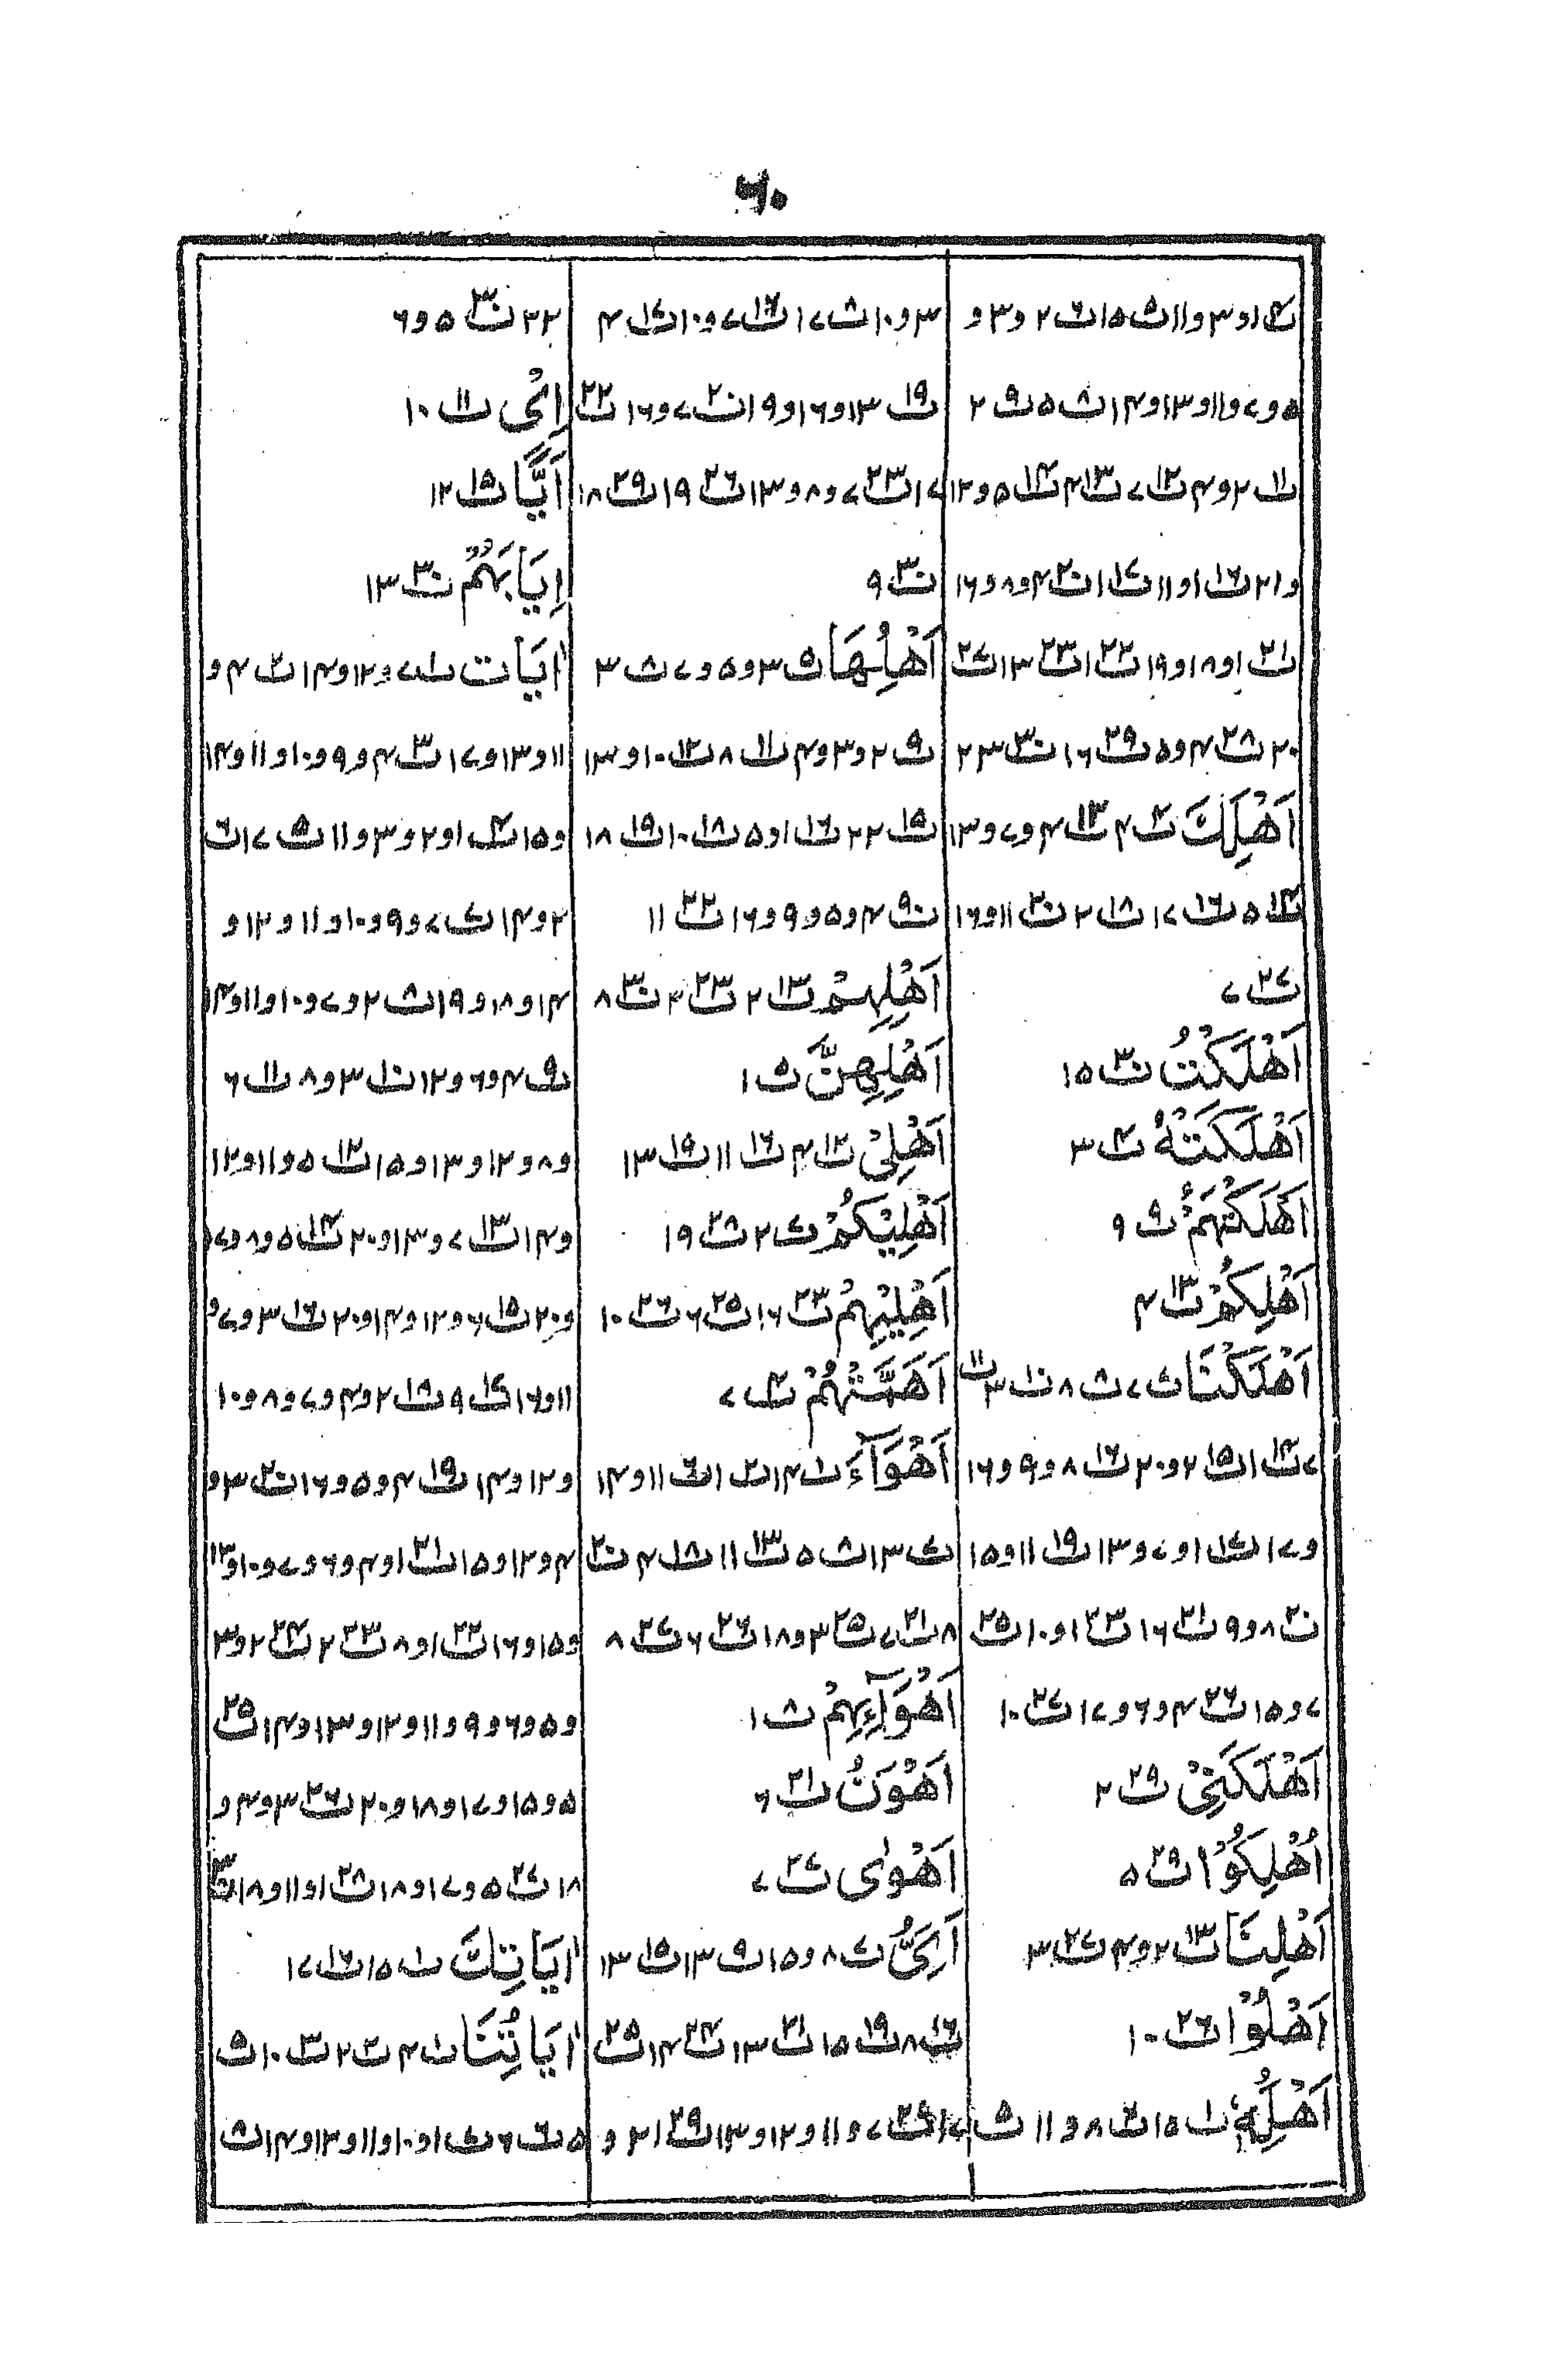 ۶۰
ت۴ ۱ و۳ و۱۱ ت۵ ۱۵ ت۶ ۲ و۳ و
۵ و۷ و۱۱ و۱۳ و۱۴ ت۸ ۵ ت۹ ۲
ت۱۱ ۲ و۴ ت۱۲ ۷ ت۱۳ ۴ ت۱۴ ۵ و۱۲
و۲۱ ت۱۶ ۱ و۱۱ ت۱۷ ۱ ت۲۰ ۴ و۸ و۱۶
ت۲۱ ۱ و۱۸ و۱۹ ت۲۲ ۱ ت۲۳ ۱۳ ت۲۷
۲۰ ت۲۸ ۴ و۵ ت۲۹ ۱۶ ت۳۰ ۲۳
اَهْلِكَ ت۲ ۴ ت۱۲ ۴ و۷ و۱۳
ت۱۴ ۵ ت۱۶ ۱۷ ت۱۸ ۲ ت۲۰ ۱۱ و۱۶
ت۲۷ ۷
اَهْلَكْتُ ت۳۰ ۱۵
اَهْلَكَتْهُ ت۴ ۳
اَهْلَكْتَهُمْ ت۹ ۹
اَهْلِكُمْ ت۱۳ ۴
اَهْلَكْنَا ت۷ ۷ ت۸ ۸ ت۱۰ ۳ ت۱۱
۷ ت۱۴ ۱ ت۱۵ ۲ و۲۰ ت۱۶ ۸ و۹ و۱۶
و۱۷ ت۱۷ ۱ و۷ و۱۳ ت۱۹ ۱۱ و۱۵
ت۲۰ ۸ و۹ ت۲۱ ۱۶ ت۲۳ ۱ و۱۰ ت۲۵
۷ و۱۵ ت۲۶ ۴ و۶ و۱۷ ت۲۷ ۱۰
اَهْلَكَنِيْ ت۲۹ ۲
اُهْلِكُوْا ت۲۹ ۵
اَهْلِنَا ت۱۳ ۲ و۴ ت۲۷ ۳
اَهْلُوْا ت۲۶ ۱۰
اَهْلُهٗ ت۱ ۱۵ ت۲ ۸ و۱۱ ت۵
۳ و۱۰ ت۸ ۱۷ ت۱۶ ۷ و۱۰ ت۱۷ ۴
ت۱۹ ۱۳ و۱۶ و۱۹ ت۲۰ ۷ و۱۶ ت۲۲
۱۷ ت۲۳ ۷ و۸ و۱۳ ت۲۶ ۱۹ ت۲۹ ۱۸
ت۳۰ ۹
اَهْلُهَا ت۵ ۳ و۵ و۷ ت۸ ۳
ت۹ ۲ و۳ و۴ ت۱۱ ۸ ت۱۲ ۱۰ و۱۳
ت۱۵ ۲۲ ت۱۶ ۱ و۵ ت۱۸ ۱۰ ت۱۹ ۱۸
ت۲۰ ۴ و۵ و۹ و۱۶ ت۲۲ ۱۱
اَهْلِهِمْ ت۱۳ ۲ ت۲۳ ۲ ت۳۰ ۸
اَهْلِهِنَّ ت۵ ۱
اَهْلِيْ ت۱۲ ۴ ت۱۶ ۱۱ ت۱۹ ۱۳
اَهْلِيْكُمْ ت۷ ۲ ت۲۸ ۱۹
اَهْلِيْهِمْ ت۲۳ ۱۶ ت۲۵ ۶ ت۲۶ ۱۰
اَهَمَّتْهُمْ ت۴ ۷
اَهْوَآءَ ت۱ ۱۴ ت۲ ۱ ت۶ ۱۱ و۱۴
ت۷ ۱۳ ت۸ ۵ ت۱۳ ۱۱ ت۱۸ ۴ ت۲۰
۸ ت۲۱ ۷ ت۲۵ ۳ و۱۸ ت۲۶ ۶ ت۲۷ ۸
اَهْوَآءِهِمْ ت۸ ۱
اَهْوَنُ ت۲۱ ۶
اَهْوٰى ت۲۷ ۷
اَيُّ ت۷ ۸ و۱۵ ت۹ ۱۳ ت۱۵ ۱۳
ت۱۶ ۸ ت۱۹ ۱۵ ت۲۱ ۱۳ ت۲۴ ۱۴ ت۲۵
۱۷ ت۲۷ ۷ و۱۱ و۱۲ و۱۳ ت۲۹ ۲۱ و
۲۲ ت۳۰ ۵ و۶
اِيْ ت۱۱ ۱۰
اَيًّا ت۱۵ ۱۲
اِيَابَهُمْ ت۳۰ ۱۳
اٰيَات ت۱ ۷ و۱۲ و۱۴ ت۲ ۴ و
۱۱ و۱۳ و۱۷ ت۳ ۴ و۹ و۱۰ و۱۱ و۱۴
و۱۵ ت۴ ۱ و۲ و۳ و۱۱ ت۵ ۱۷ ت۶
۲ و۱۴ ت۷ ۷ و۹ و۱۰ و۱۱ و۱۲ و
۱۴ و۱۸ و۱۹ ت۸ ۲ و۷ و۱۰ و۱۱ و۱۴
ت۹ ۴ و۶ و۱۲ ت۱۰ ۳ و۸ ت۱۱ ۶
و۸ و۱۲ و۱۳ و۱۵ ت۱۲ ۵ و۱۱ و۱۲
و۱۴ ت۱۳ ۷ و۱۳ و۲۰ ت۱۴ ۵ و۸ و۷
و۲۰ ت۱۵ ۶ و۱۲ و۱۴ و۲۰ ت۱۶ ۳ و۷ و
۱۱ و۱۶ ت۱۷ ۹ ت۱۸ ۲ و۴ و۷ و۸ و۱۰
و۱۲ و۱۴ ت۱۹ ۴ و۵ و۱۶ ت۲۰ ۳ و
۴ و۱۲ و۱۵ ت۲۱ ۱ و۴ و۶ و۷ و۱۰ و۱۳
و۱۵ و۱۶ ت۲۲ ۱ و۸ ت۲۳ ۲ ت۲۴ ۲ و۳
و۵ و۶ و۹ و۱۱ و۱۲ و۱۳ و۱۴ ت۲۵
۵ و۱۵ و۱۷ و۱۸ و۲۰ ت۲۶ ۳ و۴ و
۱۸ ت۲۷ ۵ و۱۷ و۱۸ ت۲۸ ۱ و۱۱ و۱۸ ت۳۰
اٰيَاتِكَ ت۱ ۱۵ ت۱۶ ۱۷
اٰيَاتِنَا ت۱ ۴ ت۲ ۲ ت۳ ۱۰ ت۵
۵ ت۶ ۶ ت۷ ۱ و۱۰ و۱۱ و۱۲ و۱۴ ت۸